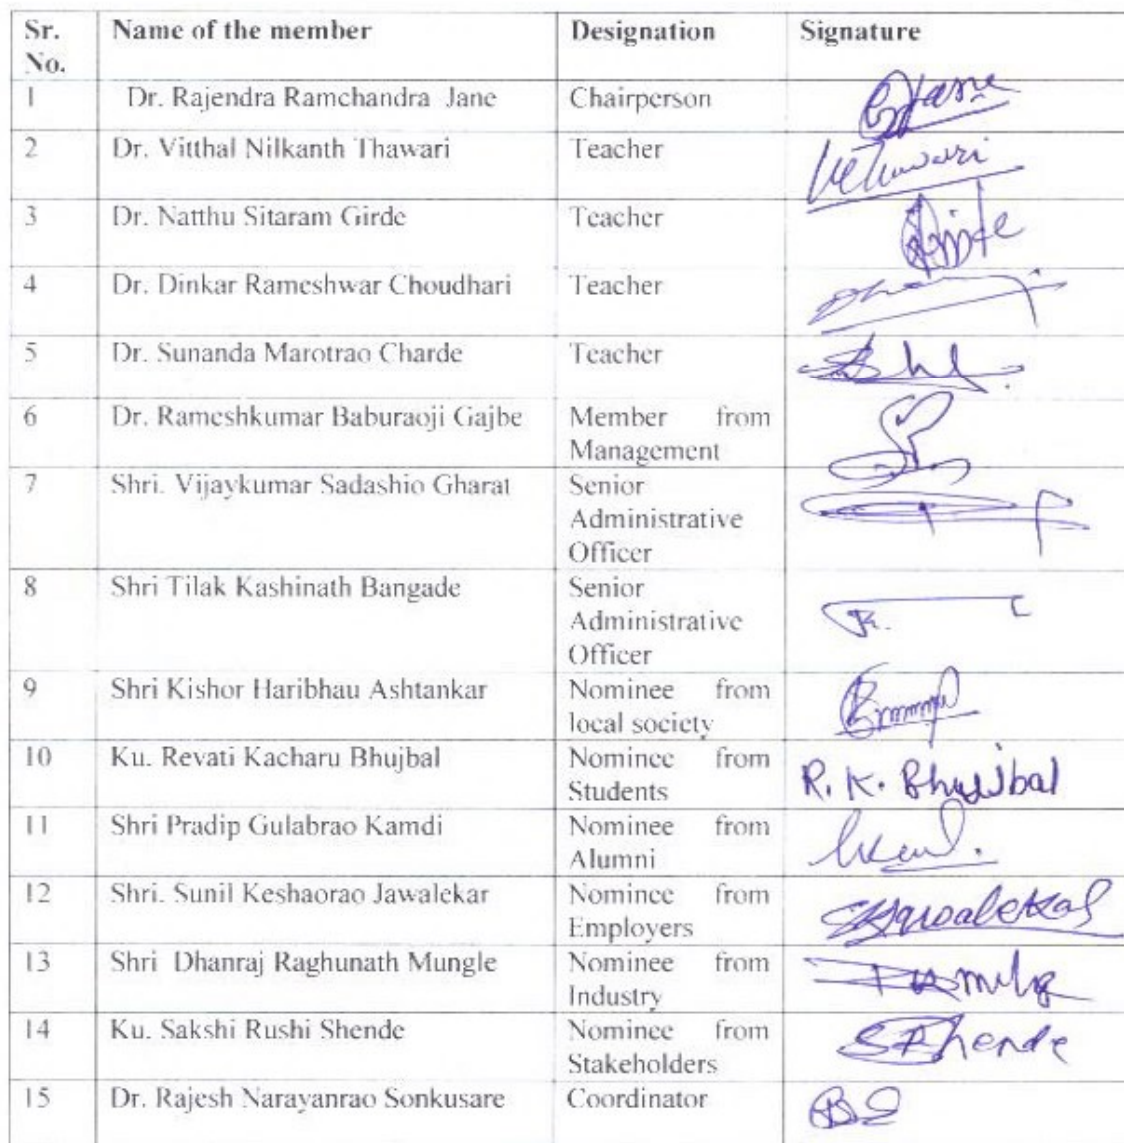 Sr. Name of the member Designation Signature
No.
1 Dr. Rajendra Ramchandra Jane Chairperson
2 Dr. Vitthal Nilkanth Thawari Teacher
3 Dr. Natthu Sitaram Girde Teacher
4 Dr. Dinkar Rameshwar Choudhari Teacher
5 Dr. Sunanda Marotrao Charde Teacher
6 Dr. Rameshkumar Baburaoji Gajbe Member from
Management
7 Shri. Vijaykumar Sadashio Gharat Senior
Administrative
Officer
8 Shri Tilak Kashinath Bangade Senior
Administrative
Officer
9 Shri Kishor Haribhau Ashtankar Nominee from
local society
10 Ku. Revati Kacharu Bhujbal Nominee from R. K. Bhujbal
Students
11 Shri Pradip Gulabrao Kamdi Nominee from
Alumni
12 Shri. Sunil Keshaorao Jawalekar Nominee from
Employers
13 Shri Dhanraj Raghunath Mungle Nominee from
Industry
14 Ku. Sakshi Rushi Shende Nominee from SRShende
Stakeholders
15 Dr. Rajesh Narayanrao Sonkusare Coordinator